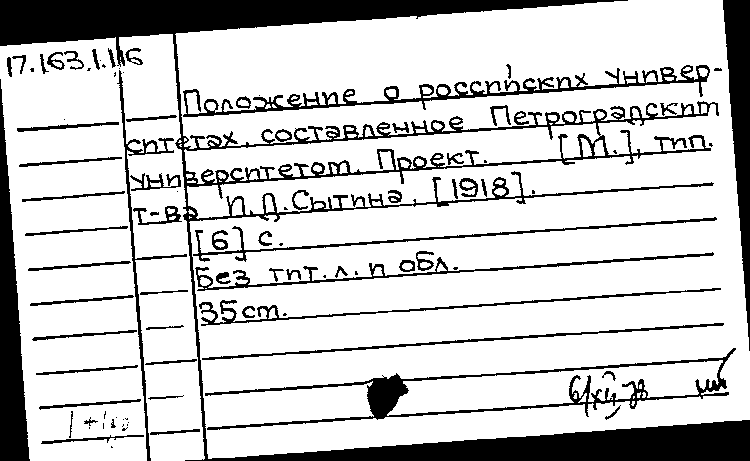 17.163.1.116
Положение о российских универ-
ситетах, составленное Петроградским
университетом. Проект. [М.], тип.
т-ва И.Д.Сытина, [1918].
[6] с.
Без тит. л. и обл.
35 см.
6/XII 78